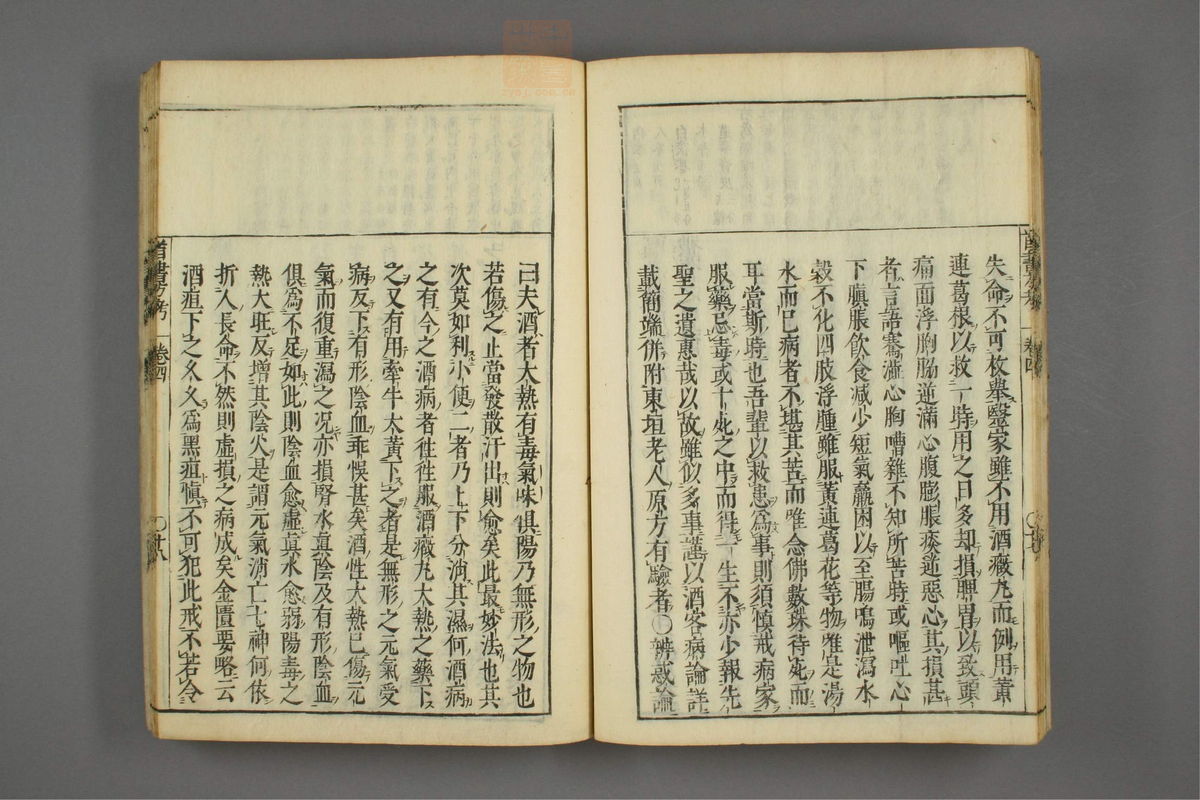 失命不可枚舉毉家雖不用酒癥丸而例用黃
連葛根以救一時用之日多却損脾胃以致頭
痛面浮胸膈逆滿心腹膨脹痰逆惡心其損甚
者言語蹇澁心胸嘈雜不知所苦時或嘔吐心
下䐜脹飲食減少短氣羸困以至腸鳴泄瀉水
穀不化四肢浮腫雖服黃連葛花等物唯是湯
水而已病者不堪其苦而唯念佛數珠待死而
耳當斯時也吾輩以救患爲事則須愼戒病家
服藥忌毒或十死之中而得一生不亦少報先
聖之遺惠哉以故雖似多事謹以酒客病論詳
載簡端併附東垣老人原方有驗者〇辨惑論
曰夫酒者大熱有毒氣味俱陽乃無形之物也
若傷之止當發散汗出則愈矣此最妙法也其
次莫如利小便二者乃上下分消其濕何酒病
之有今之酒病者往往服酒癥丸大熱之藥下
之又有用牽牛大黃下之者是無形之元氣受
病反下有形陰血乖悞甚矣酒性大熱已傷元
氣而復重瀉之况亦損腎水眞陰及有形陰血
俱爲不足如此則陰血愈虛眞水愈弱陽毒之
熱大旺反增其陰火是謂元氣消亡七神何依
折人長命不然則虛損之病成矣金匱要略云
酒疸下之久久爲黑疸愼不可犯此戒不若令
卷四
〇廿八